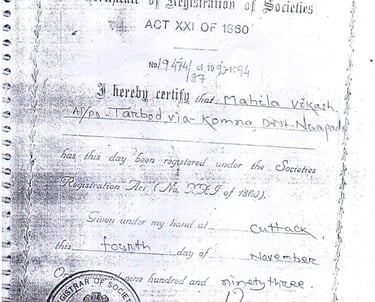 Certificate of Registration of Societies
ACT XXI OF 1860
I hereby certify that Mahila Vikash
At/po Tarbod, via- Komna, Dist- Nuapada
has this day been registered under the Societies
Registration Act (No. XXI of 1860).
Given under my hand at Cuttack
this fourth day of November
nine hundred and ninety three.
REGISTRAR OF SOCIE